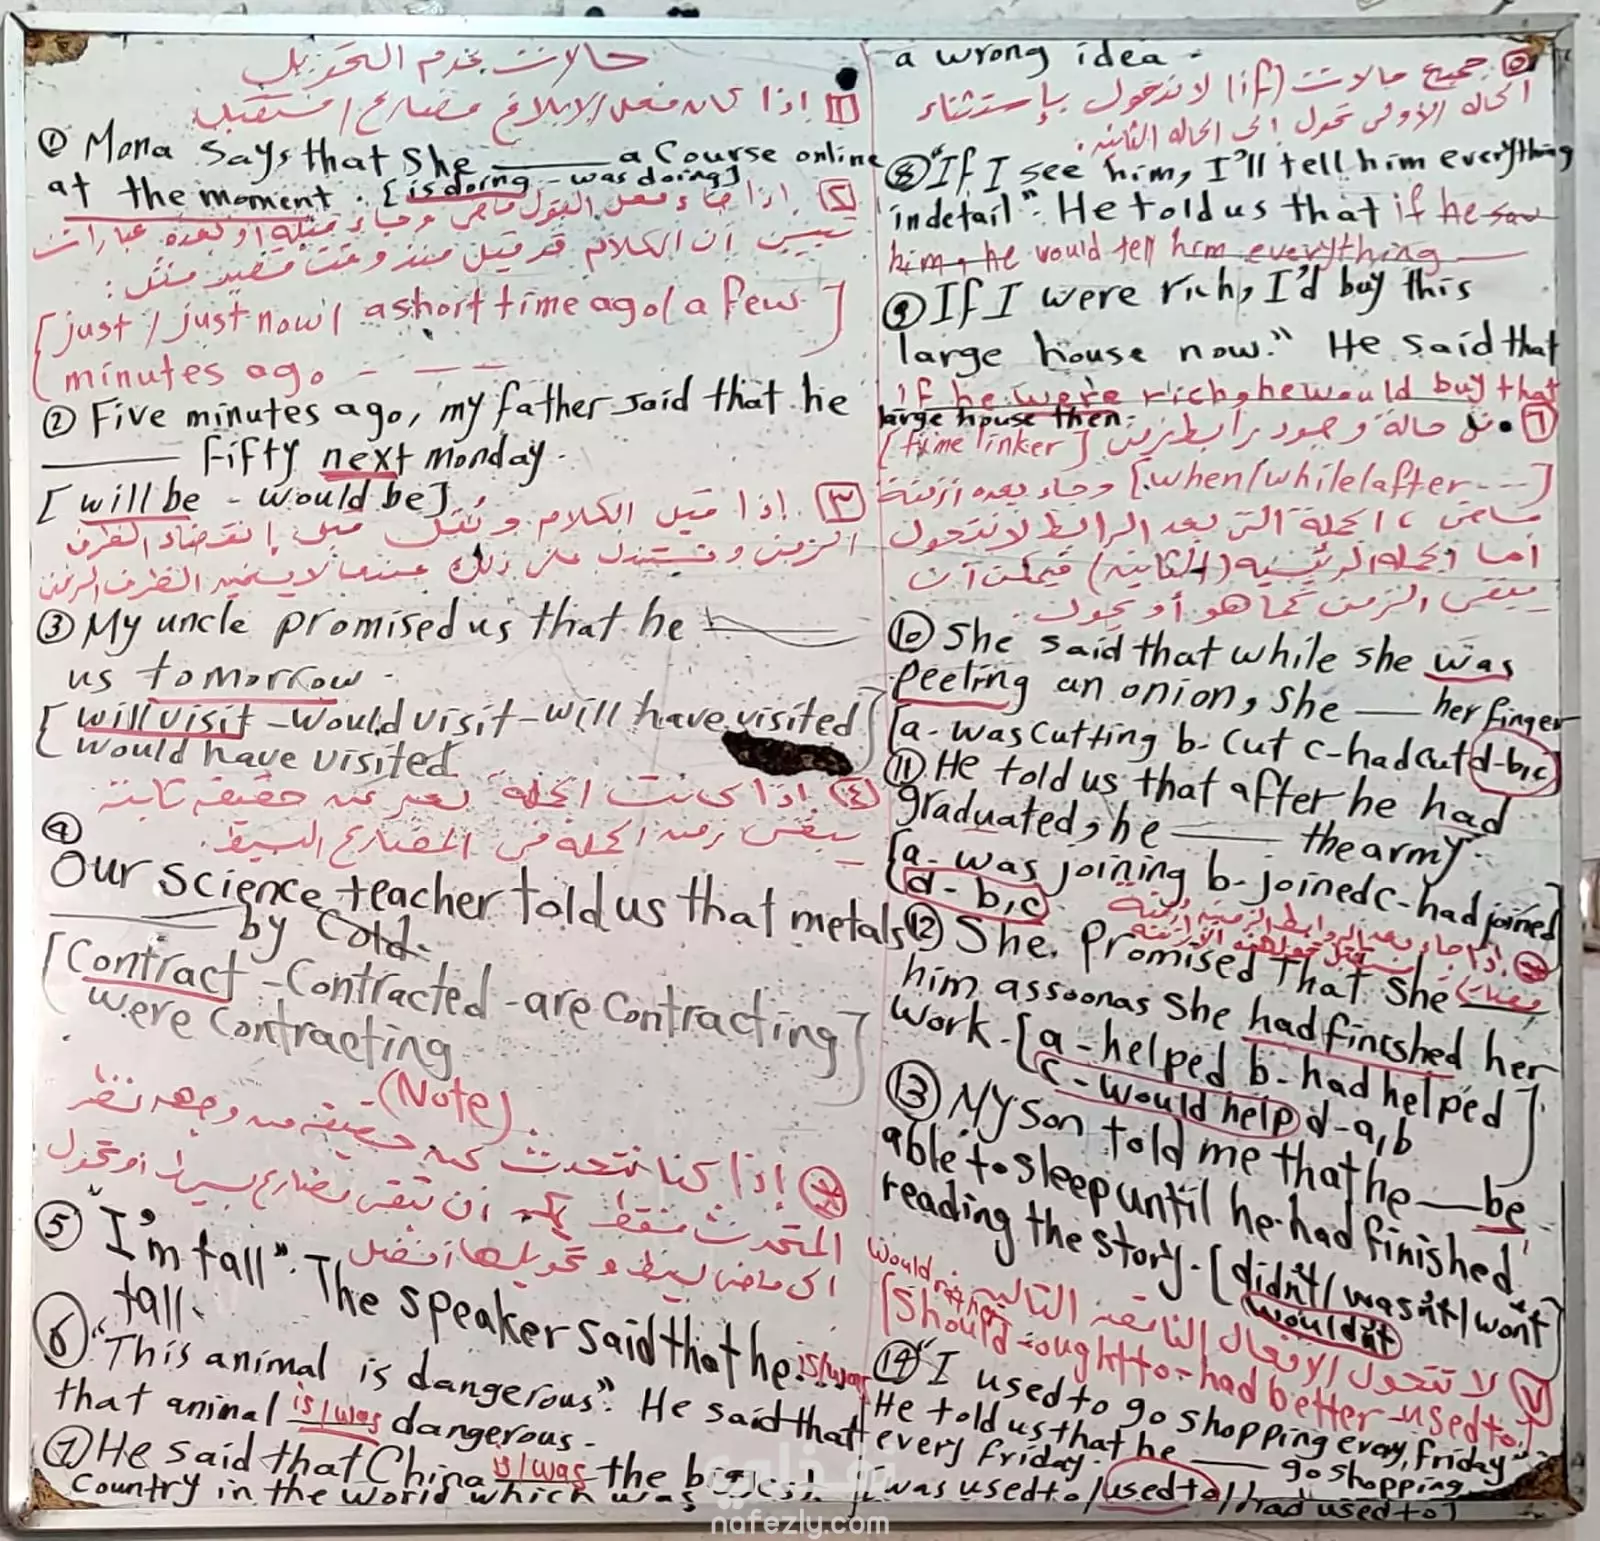 حالات عدم التحويل
[1] إذا كان فعل الإبلاغ مضارع / مستقبل
① Mona says that she ______ a Course online
at the moment. [is doing - was doing]
[2] إذا جاء فعل القول ماضى وجاء قبله أو بعده عبارات
تبين أن الكلام قد قيل منذ وقت قصير مثل:
[just / just now / a short time ago / a few
minutes ago - - - -
② Five minutes ago, my father said that he
______ fifty next monday.
[will be - would be]
[3] إذا قيل الكلام ونقل قبل انقضاء الظرف
الزمن ونستدل على ذلك عندما لا يتغير الظرف الزمن
③ My uncle promised us that he ______
us tomorrow.
[will visit - would visit - will have visited
would have visited]
[4] إذا كانت الجملة تعبر عن حقيقة ثابتة
يبقى زمن الجملة فى المضارع البسيط.
④
Our science teacher told us that metals
______ by Cold.
[Contract - Contracted - are Contracting
were Contracting]
(Note)
إذا كنا نتحدث عن حقيقة من وجهه نظر
المتحدث فقط يمكن أن تبقى مضارع بسيط أو تحول
الى ماضى بسيط وتحويلها أفضل
⑤ "I'm tall". The speaker said that he is/was
tall.
⑥ "This animal is dangerous". He said that
that animal is/was dangerous.
⑦ He said that China is/was the biggest
Country in the world which was
a wrong idea.
[5] جميع حالات (if) لا تتحول بإستثناء
الحاله الأولى تحول إلى الحاله الثانيه.
⑧ "If I see him, I'll tell him everything
in detail". He told us that if he saw
him, he would tell him everything
⑨ If I were rich, I'd buy this
large house now." He said that
if he were rich, he would buy that
large house then.
[6] فى حالة وجود رابط زمن [time linker]
[when/while/after---] وجاء بعده أزمنة
ماضى، الجملة التى بعد الرابط لا تتحول
أما الجمله الرئيسيه (الثانيه) فيمكن أن
يبقى الزمن كما هو أو يحول.
⑩ She said that while she was
peeling an onion, she ___ her finger
[a- was cutting b- cut c- had cut d- b,c]
⑪ He told us that after he had
graduated, he ______ the army.
[a- was joining b- joined c- had joined
d- b,c]
⑫ She promised that she ______
him as soon as she had finished her
work. [a- helped b- had helped
c- would help d- a,b]
⑬ My son told me that he ___ be
able to sleep until he had finished
reading the story. [didn't/wasn't/won't
wouldn't]
[7] لا تتحول الأفعال الناقصه التاليه
would rather
[Should - ought to - had better - used to]
⑭ "I used to go shopping every Friday"
He told us that he ______ go shopping
every Friday.
[was used to / used to / had used to]
نفذلي
nafezly.com